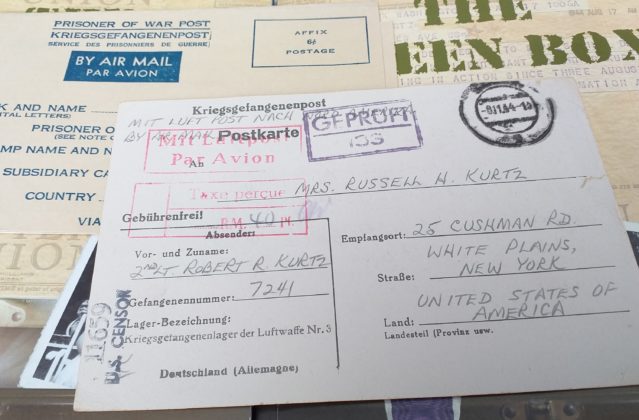 PRISONER OF WAR POST
KRIEGSGEFANGENENPOST
SERVICE DES PRISONNIERS DE GUERRE
BY AIR MAIL
PAR AVION
AFFIX
6¢
POSTAGE
THE
EEN BOX
ING IN ACTION SINCE THREE AUGUS
K AND NAME
TAL LETTERS:
PRISONER O
(SEE NOTE
MP NAME AND
SUBSIDIARY CA
COUNTRY
VIA
Kriegsgefangenenpost
MIT LUFT POST NACH
BY AIR MAIL
Postkarte
Mit Luftpost
Par Avion
GEPRÜFT
An
Taxe perçue
RM. 40 Pf.
MRS. RUSSELL H. KURTZ
Gebührenfrei!
Absender:
Vor- und Zuname:
2ND LT. ROBERT R. KURTZ
Gefangenennummer: 7241
Lager-Bezeichnung:
Kriegsgefangenenlager der Luftwaffe Nr. 3
Deutschland (Allemagne)
Empfangsort: 25 CUSHMAN RD.
WHITE PLAINS,
Straße: NEW YORK
UNITED STATES OF
Land: AMERICA
Landesteil (Provinz usw.
11659
U.S. CENSOR